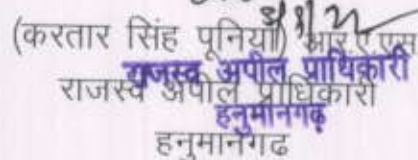 (करतार सिंह पूनिया) आर.ए.एस
राजस्व अपील प्राधिकारी
राजस्व अपील प्राधिकारी
हनुमानगढ़
हनुमानगढ